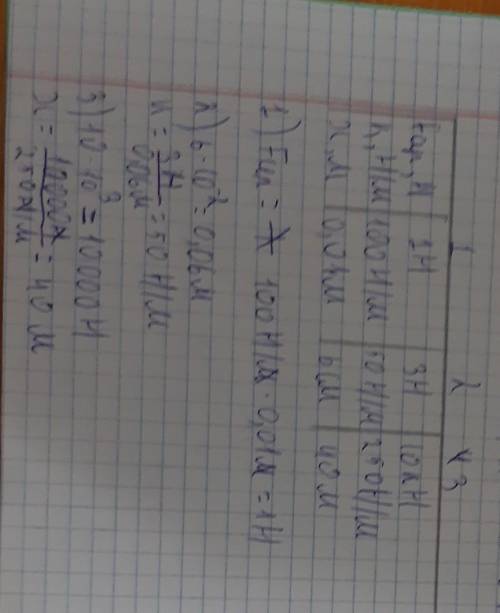 1 2 3
Fупр, Н 1Н 3Н 10кН
k, Н/м 100 Н/м 50 Н/м 250Н/м
x, м 0,01м 6м 40м
1) Fупр = 100 Н/м · 0,01м = 1Н
2) 6·10⁻² = 0,06м
k = 3Н/0,06м = 50 Н/м
3) 10·10³ = 10000Н
x = 10000Н/250Н/м = 40 м